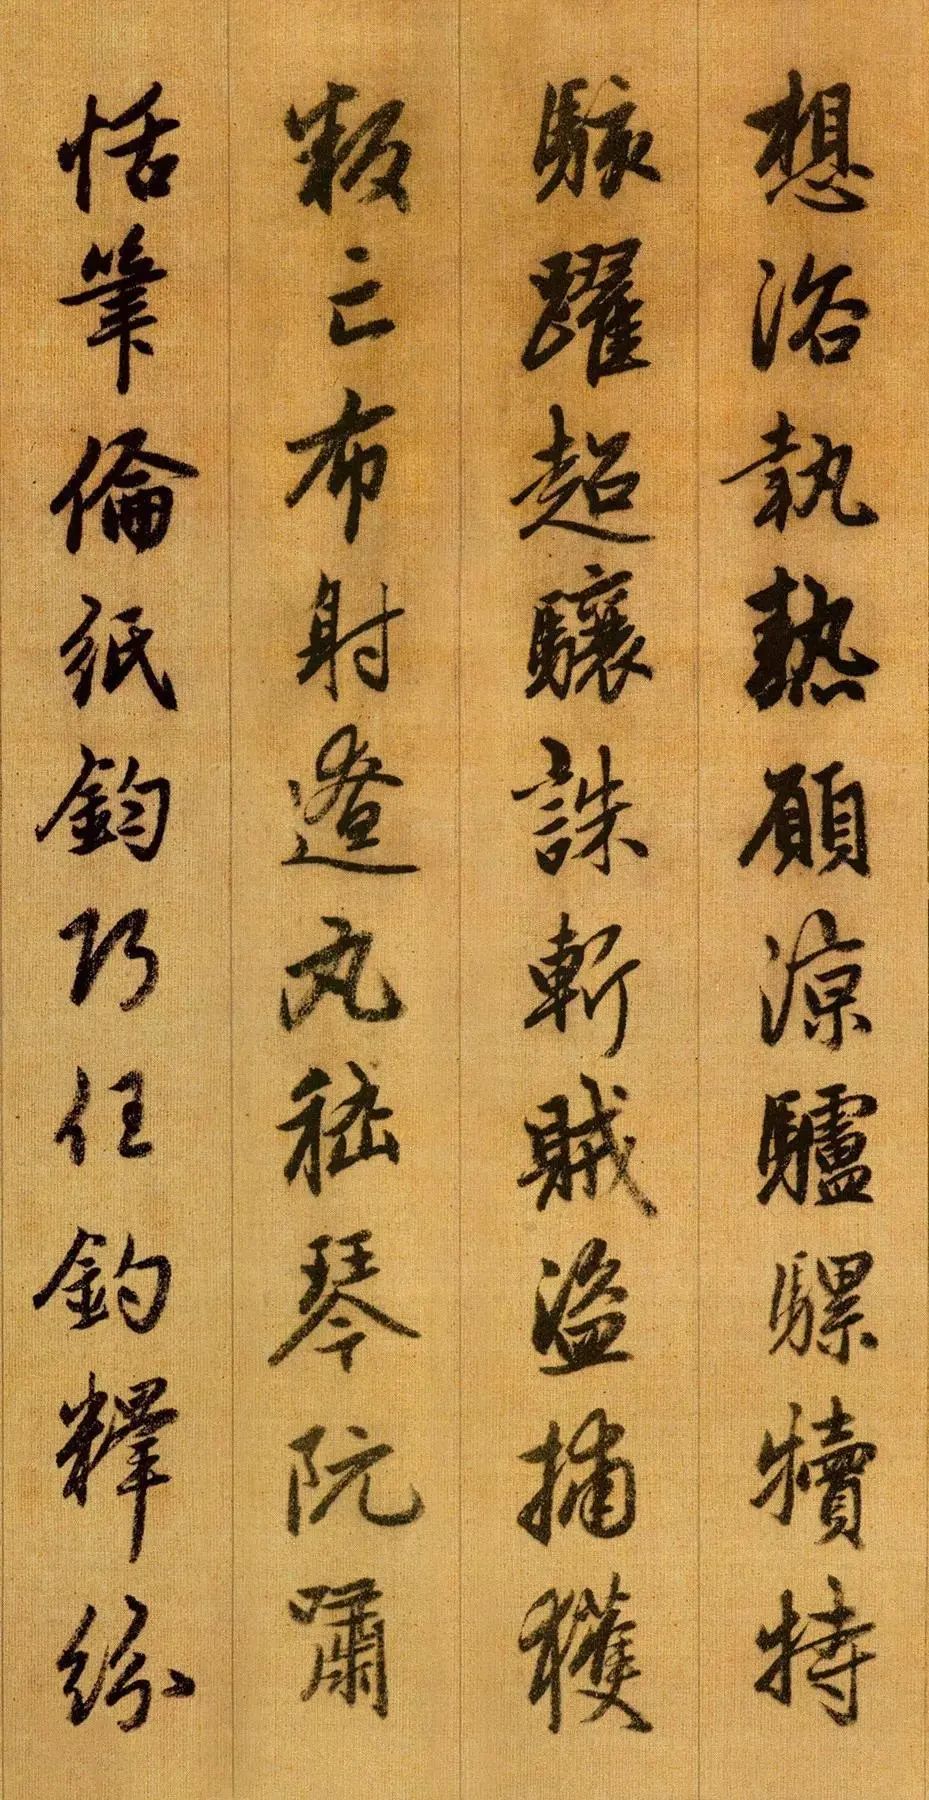 想浴執熱願涼驢騾犢特
駭躍超驤誅斬賊盜捕獲
叛亡布射遼丸嵇琴阮嘯
恬筆倫紙鈞巧任釣釋紛